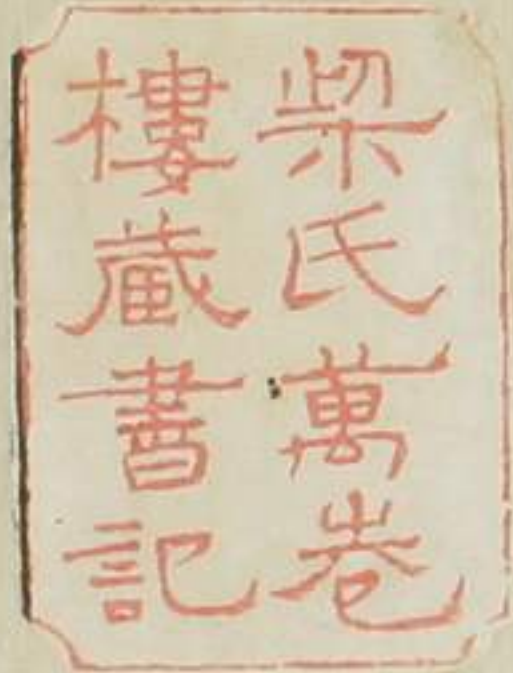 梁氏萬卷
樓藏書記